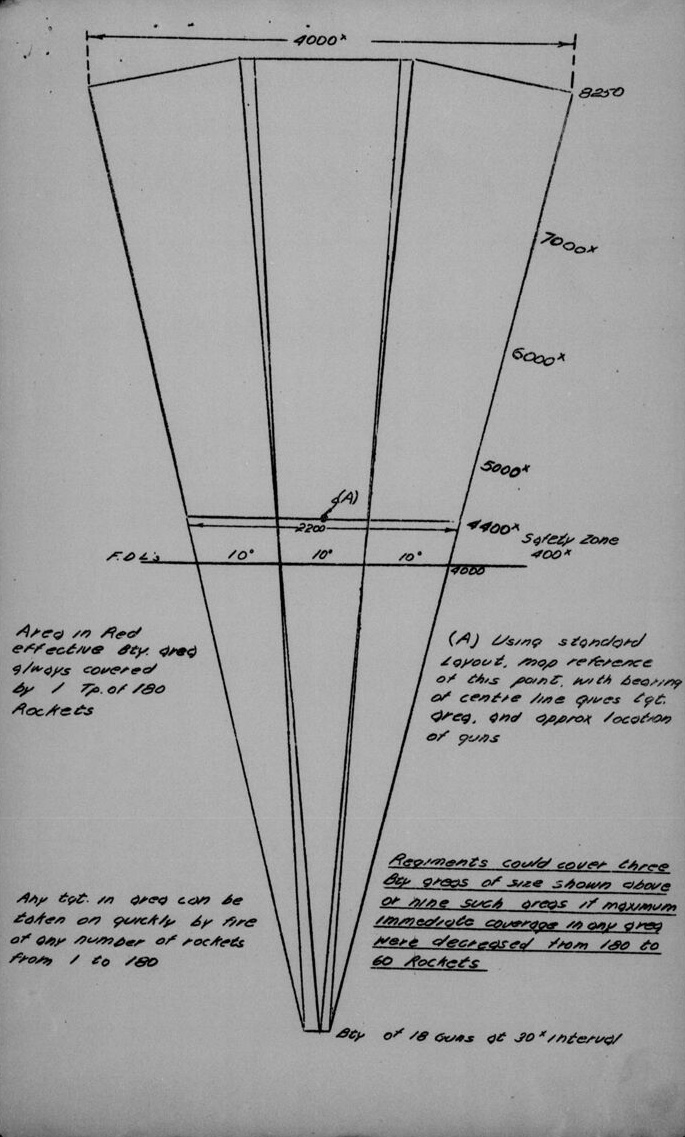 4000ˣ
8250
7000ˣ
6000ˣ
5000ˣ
(A)
2200
4400ˣ
Safety Zone
400ˣ
F.D.L's
10°
10°
10°
4000
Area in Red
effective Bty. area
always covered
by 1 Tp. of 180
Rockets
(A) Using standard
Layout, map reference
of this point, with bearing
of centre line gives tgt.
area, and approx location
of guns
Any tgt. in area can be
taken on quickly by fire
of any number of rockets
from 1 to 180
Regiments could cover three
Bty areas of size shown above
or nine such areas if maximum
immediate coverage in any area
were decreased from 180 to
60 Rockets
Bty of 18 Guns at 30ˣ interval